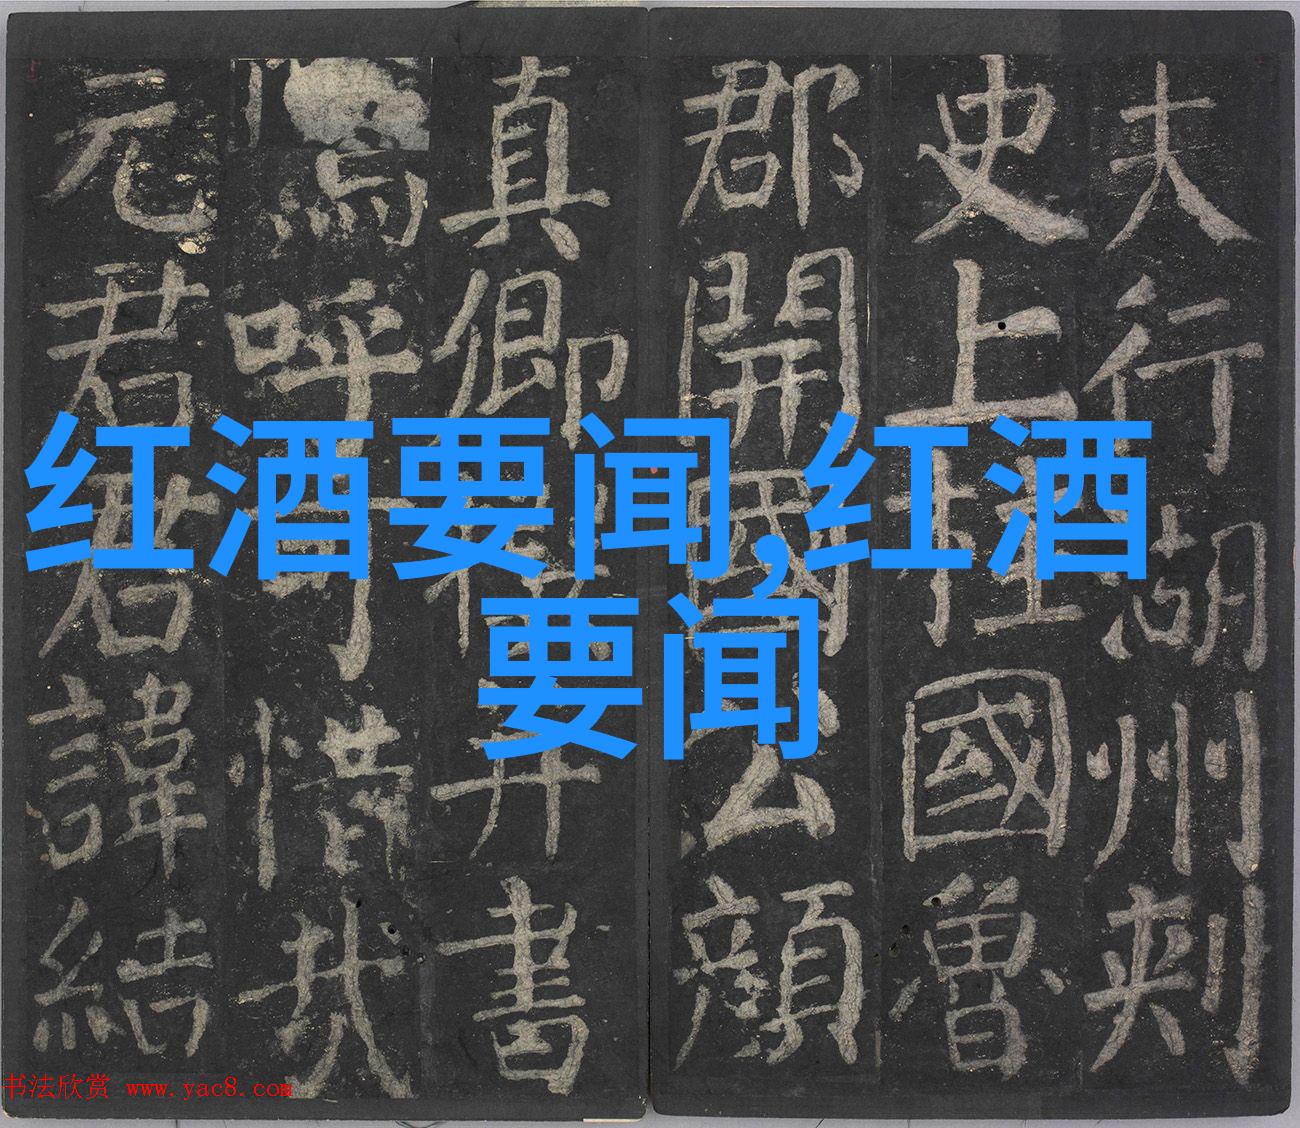 夫行湖州刺
史上柱國魯
郡開國公顏
真卿撰并書
嗚呼可惜哉
元君君諱結
红酒要闻,红酒
要闻
书法欣赏 www.yac8.com